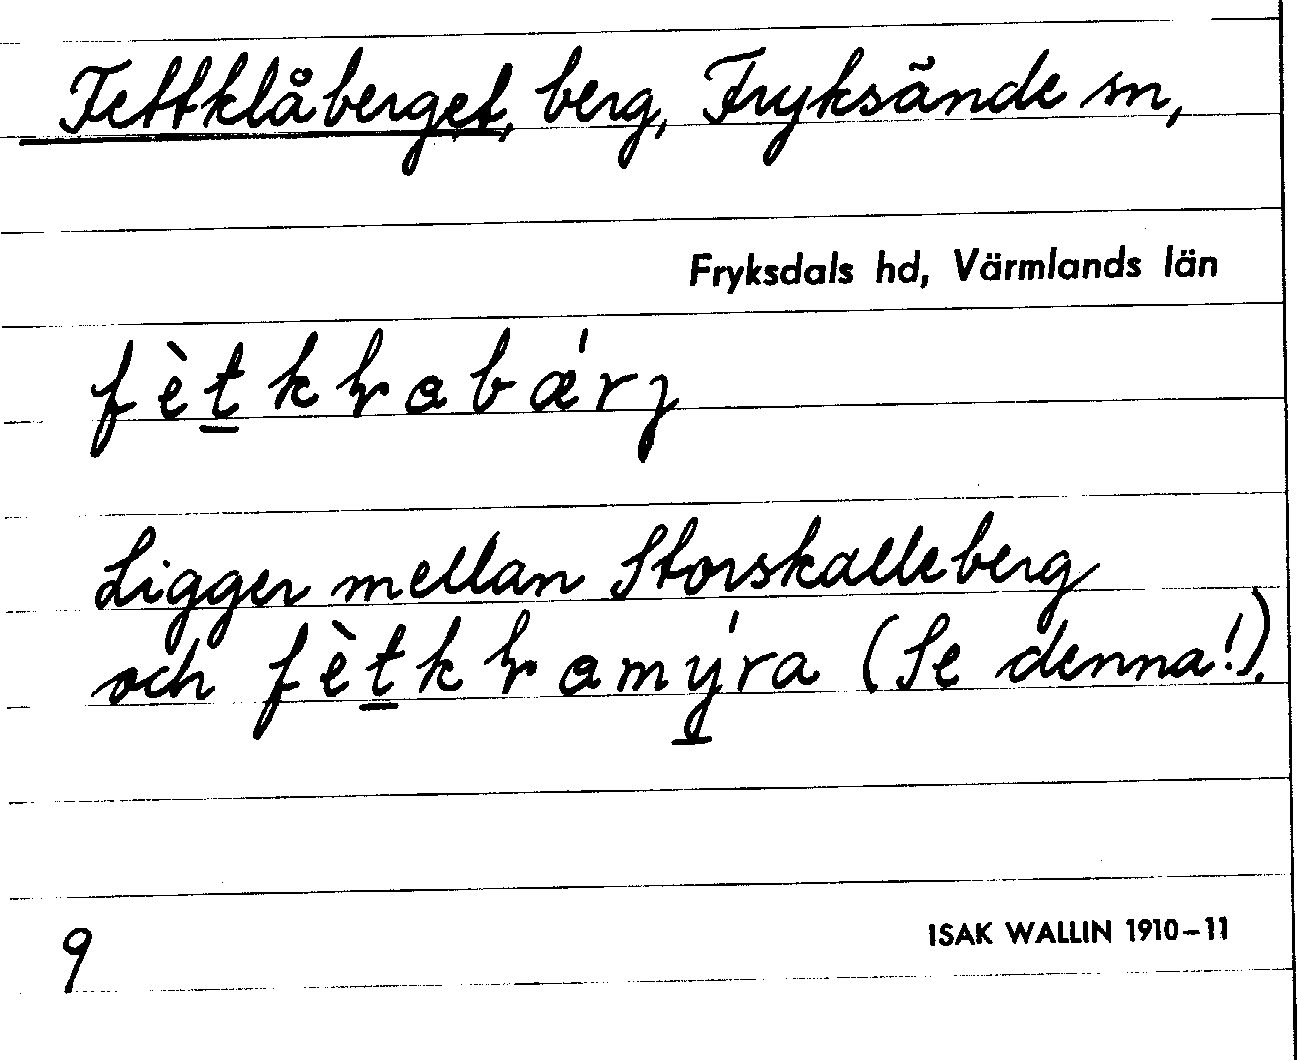 Fettklåberget, berg, Fryksände sn,
Fryksdals hd, Värmlands län
fèt̲kƚɑbǽrȷ
Ligger mellan Storskalleberg
och fèt̲kƚɑmý̲ra (Se denna!).
9
ISAK WALLIN 1910-11